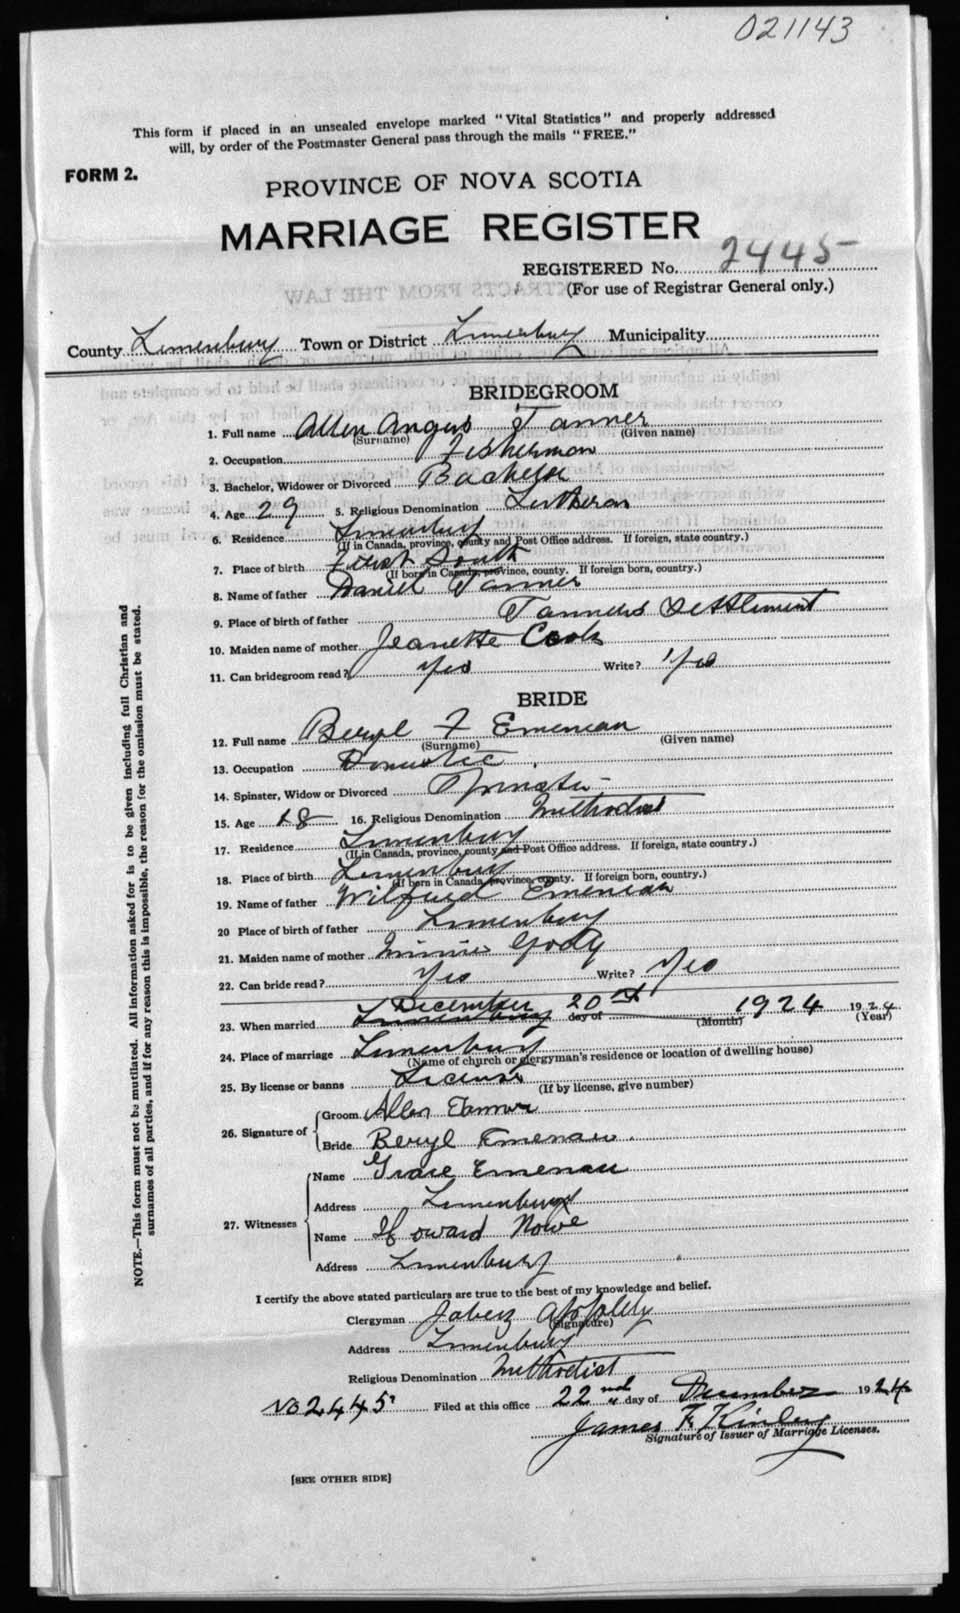 021143
This form if placed in an unsealed envelope marked "Vital Statistics" and properly addressed
will, by order of the Postmaster General pass through the mails "FREE."
FORM 2.
PROVINCE OF NOVA SCOTIA
MARRIAGE REGISTER
REGISTERED No. 2445
(For use of Registrar General only.)
County Lunenburg Town or District Lunenburg Municipality
BRIDEGROOM
1. Full name Allen Angus Tanner
(Surname) (Given name)
2. Occupation Fisherman
3. Bachelor, Widower or Divorced Bachelor
4. Age 29 5. Religious Denomination Lutheran
6. Residence Lunenburg
(If in Canada, province, county and Post Office address. If foreign, state country.)
7. Place of birth First South
(If born in Canada, province, county. If foreign born, country.)
8. Name of father Daniel Tanner
9. Place of birth of father Tanners Settlement
10. Maiden name of mother Jeanette Cook
11. Can bridegroom read? Yes Write? Yes
BRIDE
12. Full name Beryl F Emeneau
(Surname) (Given name)
13. Occupation Domestic
14. Spinster, Widow or Divorced Spinster
15. Age 18 16. Religious Denomination Methodist
17. Residence Lunenburg
(If in Canada, province, county and Post Office address. If foreign, state country.)
18. Place of birth Lunenburg
(If born in Canada, province, county. If foreign born, country.)
19. Name of father Wilfred Emeneau
20 Place of birth of father Lunenburg
21. Maiden name of mother Minnie
22. Can bride read? Yes Write? Yes
23. When married Lunenburg December 20 day of 1924 1924
(Month) (Year)
24. Place of marriage Lunenburg
(Name of church or clergyman's residence or location of dwelling house)
25. By license or banns License
(If by license, give number)
26. Signature of Groom Allen Tanner
Bride Beryl Emeneau.
27. Witnesses Name Grace Emeneau
Address Lunenburg
Name Howard Nowe
Address Lunenburg
I certify the above stated particulars are true to the best of my knowledge and belief.
Clergyman Jabez Appleby
(Signature)
Address Lunenburg
Religious Denomination Methodist
No 2445 Filed at this office 22nd day of December 1924
James F. Kinley
Signature of Issuer of Marriage Licenses.
[SEE OTHER SIDE]
NOTE.—This form must not be mutilated. All information asked for is to be given including full Christian and
surnames of all parties, and if for any reason this is impossible, the reason for the omission must be stated.